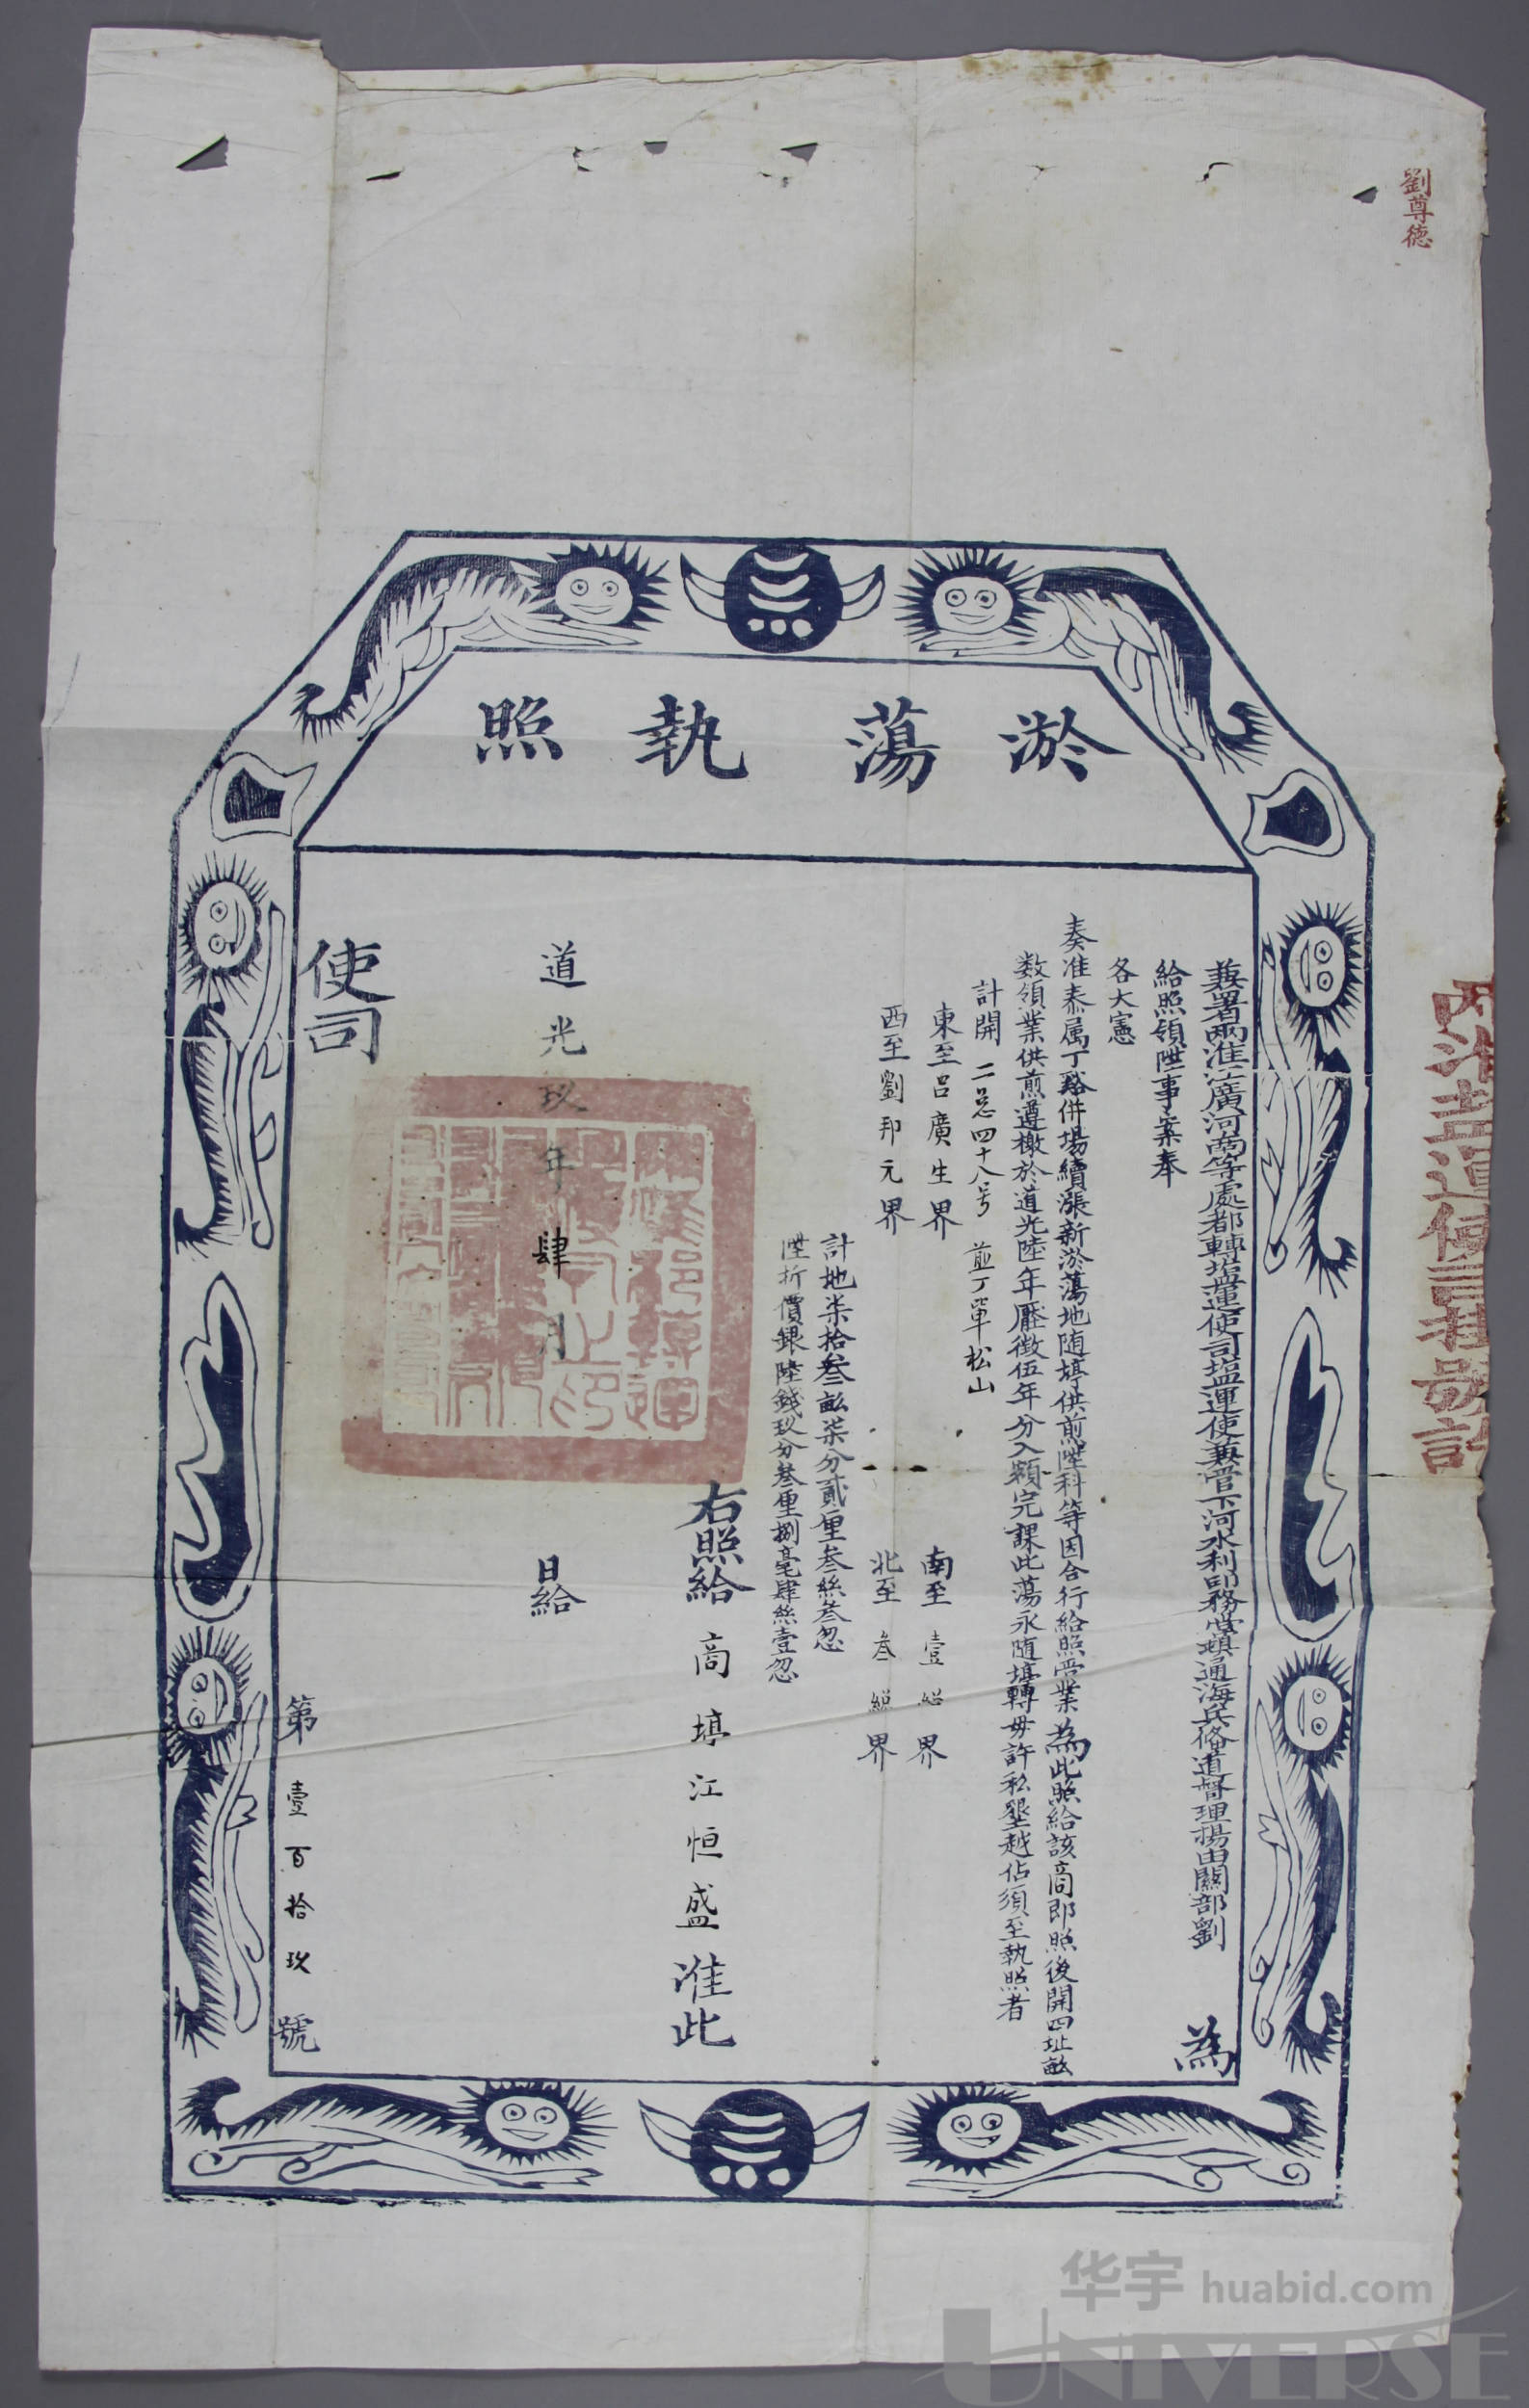 劉尊德
淤蕩執照
兼署兩淮江廣河南等處都轉塩運使司塩運使兼管下河水利印務常鎮通海兵俻道督理揚由關部劉 為
給照領陞事案奉
各大憲
奏准泰属丁谿併場續漲新淤蕩地随𤌴供煎陞科等因合行給照管業為此照給該商即照後開四址畝
数領業供煎遵檄於道光陸年壓徵伍年分入額完課此蕩永随𤌴轉毋許私墾越佔須至執照者
計開 二总四十八号 煎丁單松山
東至呂廣生界 南至壹 界
西至劉邦元界 北至叁 界
計地柒拾叁畝柒分貳厘叁絲叁忽
陞折價銀陸錢玖分叁厘捌毫肆絲壹忽
右照給商 江恒盛准此
道光玖年肆月 日給
使司
第壹百拾玖號
华宇 huabid.com
UNIVERSE